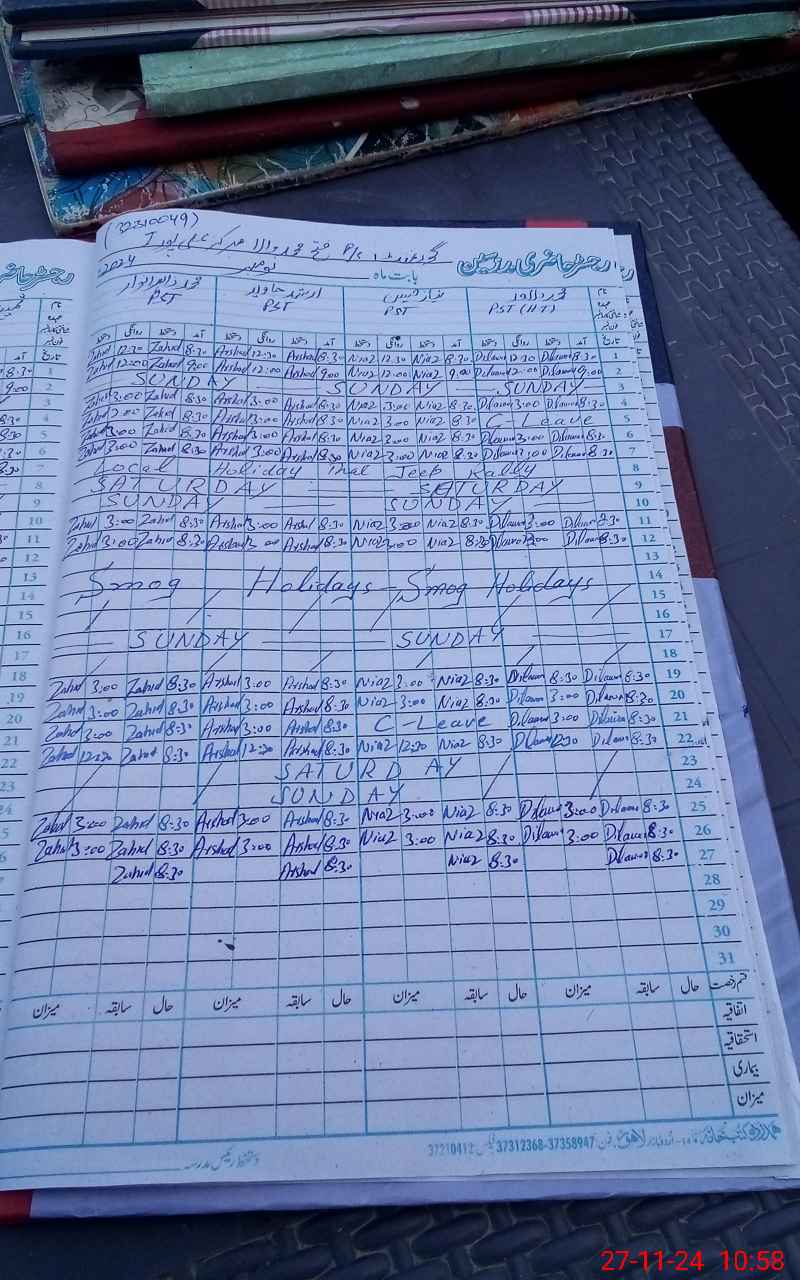 (32310049)
رجسٹر حاضری مدرسین
بابت ماہ نومبر 2024
محمد دلاور نیاز ارشد جاوید
PST (HT) PST PST PST
تاریخ آمد دستخط روانگی دستخط آمد دستخط روانگی دستخط آمد دستخط روانگی دستخط آمد دستخط روانگی دستخط
Zahid 12:30 Zahid 8:30 Arshad 12:30 Arshad 8:30 Niaz 12:30 Niaz 8:30 Dilawar 12:30 Dilawar 8:30 1
Zahid 12:00 Zahid 9:00 Arshad 12:00 Arshad 9:00 Niaz 12:00 Niaz 9:00 Dilawar 12:00 Dilawar 9:00 2
SUNDAY SUNDAY SUNDAY 3
Zahid 3:00 Zahid 8:30 Arshad 3:00 Arshad 8:30 Niaz 3:00 Niaz 8:30 Dilawar 3:00 Dilawar 8:30 4
Zahid Zahid 8:30 Arshad 3:00 Arshad 8:30 Niaz 3:00 Niaz 8:30 C-Leave 5
Zahid 3:00 Zahid 8:30 Arshad 3:00 Arshad 8:30 Niaz 3:00 Niaz 8:30 Dilawar 3:00 Dilawar 8:30 6
Zahid 3:00 Zahid 8:30 Arshad 3:00 Arshad 8:30 Niaz 3:00 Niaz 8:30 Dilawar 3:00 Dilawar 8:30 7
Local Holiday Thal Jeep Rally 8
SATURDAY SETURDAY 9
SUNDAY SUNDAY 10
Zahid 3:00 Zahid 8:30 Arshad 3:00 Arshad 8:30 Niaz 3:00 Niaz 8:30 Dilawar 3:00 Dilawar 8:30 11
Zahid 3:00 Zahid 8:30 Arshad 3:00 Arshad 8:30 Niaz 3:00 Niaz 8:30 Dilawar 3:00 Dilawar 8:30 12
13
Smog Holidays Smog Holidays 14
15
16
SUNDAY SUNDAY 17
18
Zahid 3:00 Zahid 8:30 Arshad 3:00 Arshad 8:30 Niaz 3:00 Niaz 8:30 Dilawar 8:30 Dilawar 8:30 19
Zahid 3:00 Zahid 8:30 Arshad 3:00 Arshad 8:30 Niaz 3:00 Niaz 8:30 Dilawar 3:00 Dilawar 8:30 20
Zahid 3:00 Zahid 8:30 Arshad 3:00 Arshad 8:30 C-Leave Dilawar 3:00 Dilawar 8:30 21
Zahid 12:30 Zahid 8:30 Arshad 12:30 Arshad 8:30 Niaz 12:30 Niaz 8:30 Dilawar 12:30 Dilawar 8:30 22
SATURDAY 23
SUNDAY 24
Zahid 3:00 Zahid 8:30 Arshad 3:00 Arshad 8:30 Niaz 3:00 Niaz 8:30 Dilawar 3:00 Dilawar 8:30 25
Zahid 3:00 Zahid 8:30 Arshad 3:00 Arshad 8:30 Niaz 3:00 Niaz 8:30 Dilawar 3:00 Dilawar 8:30 26
Zahid 8:30 Arshad 8:30 Niaz 8:30 Dilawar 8:30 27
28
29
30
31
قسم رخصت حال سابقہ میزان حال سابقہ میزان حال سابقہ میزان حال سابقہ میزان
اتفاقیہ
استحقاقیہ
بیماری
میزان
ہمدرد کتب خانہ اردو بازار لاہور فون: 37312368-37358947 فیکس: 37210412
دستخط رئیس مدرسہ
27-11-24 10:58